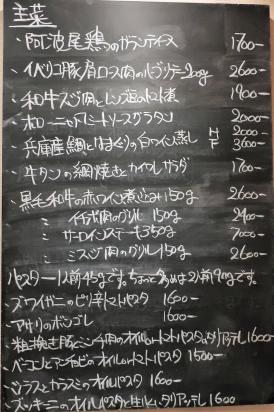 主菜
・阿波尾鶏のガランティース 1700-
・イベリコ豚肩ロース肉のハーブソテー200g 2600-
・和牛スジ肉とレンズ豆のトマト煮 1900-
・ボロネーゼ グラタン 2000-
・兵庫産鯛とはまぐりの白ワイン蒸し H 2000- F 3600-
・牛タンの網焼きとカイワレサラダ 1700-
・黒毛和牛のホワイト煮込み 150g 2600-
〃 イチボ肉のグリル 150g 2400-
〃 サーロインステーキ350g 7000-
〃 ミスジ肉のグリル150g 2600-
パスター1人前45gです。ちょっと多めは2人前90gです。
・ズワイガニのピリ辛トマトパスタ 1600-
・アサリのボンゴレ 1600-
・粗挽き豚ミンチ肉のオイルorトマトパスタ 1600-
・ベーコンとアンチョビのオイルorトマトパスタ 1500-
・シラスとカラスミのオイルパスタ 1600-
・ズッキーニのオイルパスタと生ハム 1600